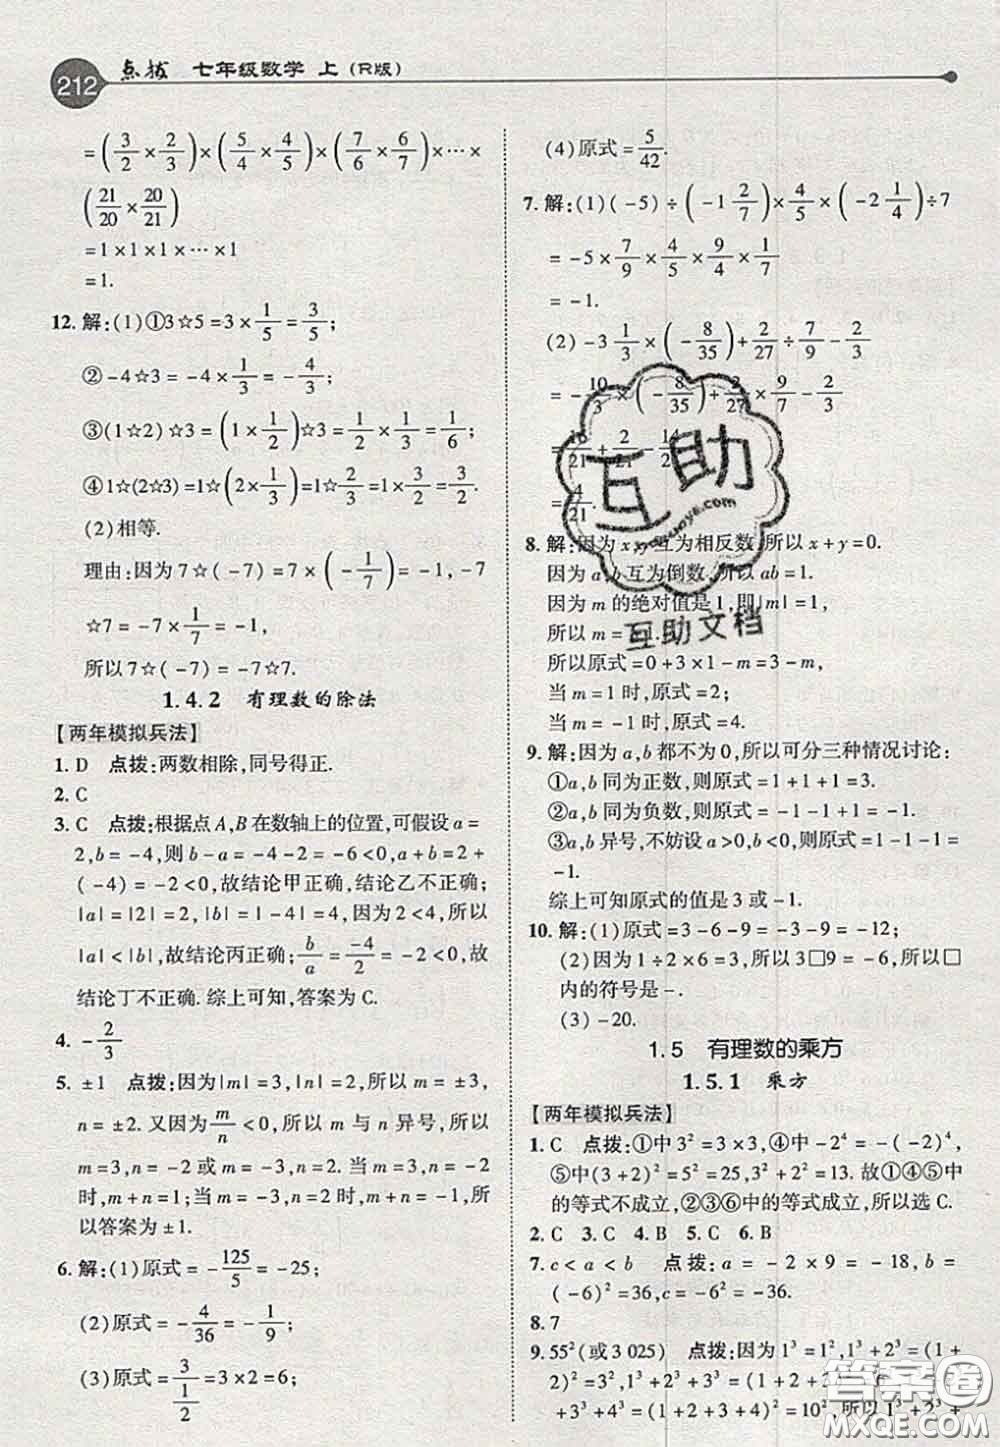 212 点拨 七年级数学 上(R版)
=(3/2×2/3)×(5/4×4/5)×(7/6×6/7)×…×
(21/20×20/21)
=1×1×1×…×1
=1.
12. 解:(1)①3☆5=3×1/5=3/5;
②-4☆3=-4×1/3=-4/3;
③(1☆2)☆3=(1×1/2)☆3=1/2×1/3=1/6;
④1☆(2☆3)=1☆(2×1/3)=1☆2/3=1×3/2=3/2.
(2)相等.
理由:因为7☆(-7)=7×(-1/7)=-1,-7
☆7=-7×1/7=-1,
所以7☆(-7)=-7☆7.
1.4.2 有理数的除法
【两年模拟兵法】
1. D 点拨:两数相除,同号得正.
2. C
3. C 点拨:根据点A,B在数轴上的位置,可假设a=
2,b=-4,则b-a=-4-2=-6<0,a+b=2+
(-4)=-2<0,故结论甲正确,结论乙不正确;
|a|=|2|=2,|b|=|-4|=4,因为2<4,所以
|a|<|b|,故结论丙正确;b/a=-4/2=-2<0,故
结论丁不正确.综上可知,答案为C.
4. -2/3
5. ±1 点拨:因为|m|=3,|n|=2,所以m=±3,
n=±2.又因为m/n<0,所以m与n异号,所以
m=3,n=-2或m=-3,n=2.当m=3,n=-2
时,m+n=1;当m=-3,n=2时,m+n=-1,所
以答案为±1.
6. 解:(1)原式=-125/5=-25;
(2)原式=-4/36=-1/9;
(3)原式=3/(1/2)=3×2=6;
(4)原式=5/42.
7. 解:(1)(-5)÷(-1 2/7)×4/5×(-2 1/4)÷7
=-5×7/9×4/5×9/4×1/7
=-1.
(2)-3 1/3×(-8/35)+2/27÷7/9-2/3
=-10/3×(-8/35)+2/27×9/7-2/3
=16/21+2/21-14/21
=4/21.
8. 解:因为x,y互为相反数,所以x+y=0.
因为a,b互为倒数,所以ab=1.
因为m的绝对值是1,即|m|=1,
所以m=±1.
所以原式=0+3×1-m=3-m.
当m=1时,原式=2;
当m=-1时,原式=4.
9. 解:因为a,b都不为0,所以可分三种情况讨论:
①a,b同为正数,则原式=1+1+1=3.
②a,b同为负数,则原式=-1-1+1=-1.
③a,b异号,不妨设a>0,b<0,则原式=1-1-1=
-1.
综上可知原式的值是3或-1.
10. 解:(1)原式=3-6-9=-3-9=-12;
(2)因为1÷2×6=3,所以3□9=-6,所以□
内的符号是-.
(3)-20.
1.5 有理数的乘方
1.5.1 乘方
【两年模拟兵法】
1. C 点拨:①中3²=3×3,④中-2⁴=-(-2)⁴,
⑤中(3+2)²=5²=25,3²+2²=13.故①④⑤中
的等式不成立,②③⑥中的等式成立,所以选C.
2. C 3. C 4. B 5. C 6. B
7. c<a<b 点拨:a=-2×3²=-18,b=
(-6)²=36,c=-6²=-36.
8. 7
9. 55²(或3 025) 点拨:因为1³=1²,1³+2³=(1+
2)²=3²,1³+2³+3³=(1+2+3)²=6²,1³+2³
+3³+4³=(1+2+3+4)²=10²,所以1³+2³+
互助
互助文档
答案圈
MXQE.COM